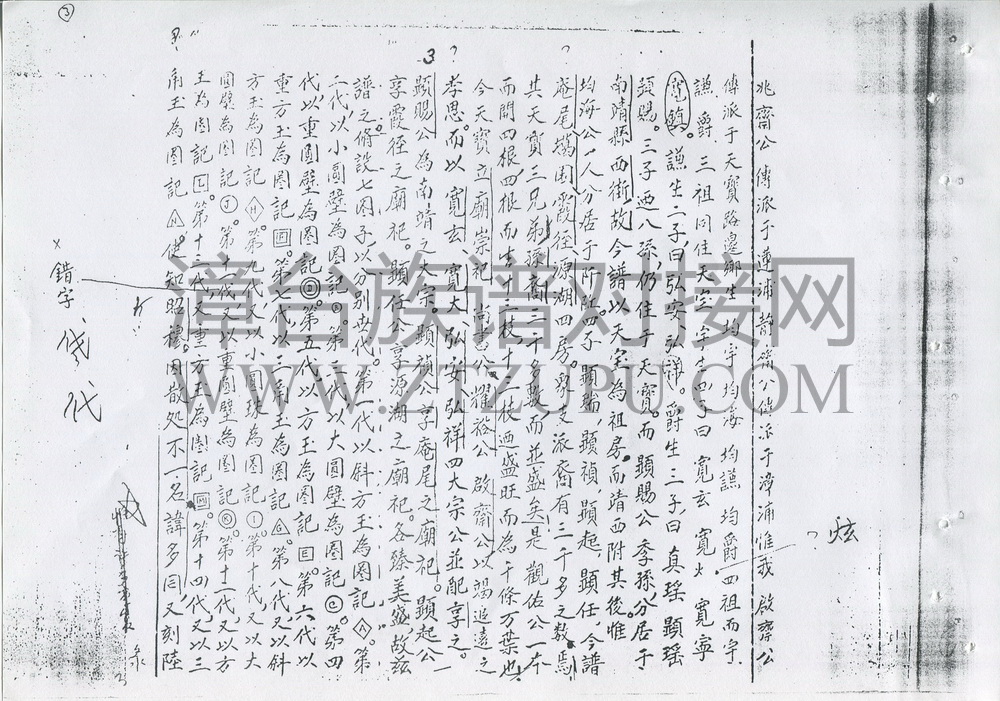 3
兆齋公傳派于蓮浦 靜齋公傳派于漳浦 惟我 啟齋公
傳派于天寶路邊鄉生 均宇 均海 均謙 均爵 四祖而宇
謙 爵 三祖同住天宝 宇生四子曰 寬玄 寬火 寬寧
寬鎮。謙生二子曰弘安 弘祥。爵生三子曰真瑶 顯瑶
顯賜。三子西八孫,仍住于天寶。而顯賜公季孫,分居于
南靖縣西街,故今譜以天宝為祖房,而靖西附其後,惟
均海公一人分居于 四子 顯瑞,顯禎,顯起,顯任,今譜
庵尾 霞徑源湖四房。 支派裔有三千多之数,焉
其天寶三兄弟孫裔三千多数而並盛矣是觀佑公一本
而開四根,四根而生十三枝十三枝西盛旺而為千條万葉也
今天寶立廟崇祀 尚書公,耀裕公 啟齋公以竭追遠之
孝思。而以寬玄 寬大,弘安,弘祥四大宗公並配享之。
顯賜公為南靖之大宗。顯禎公享庵尾之廟祀。顯起公
享霞徑之廟祀。顯任公享源湖之廟祀。各臻美盛故兹
譜之脩設七圈子以分别世代。第一代以斜方玉為圈記A。第
二代以小圓壁為圈記 。第三代以大圓壁為圈記C。第四
代,以重圓壁為圈記 。第五代以方玉為圈記E。第六代以
重方玉為圈記 。第七代以三角玉為圈記G。第八代又以斜
方玉為圈記H。第九代又以小圓珠為圈記I。第十代又以大
圓壁為圈記J。第十一代又以重圓壁為圈記K。第十二代又以方
玉為圈記L。第十三代又重方玉為圈記M。第十四代又以三
角玉為圈記N。使知昭穆。因散处不一名諱多同,又刻陸
?
?
?
炫
3
x
錯字、
代
漳台族谱对接网
WWW.ZTZUPU.COM